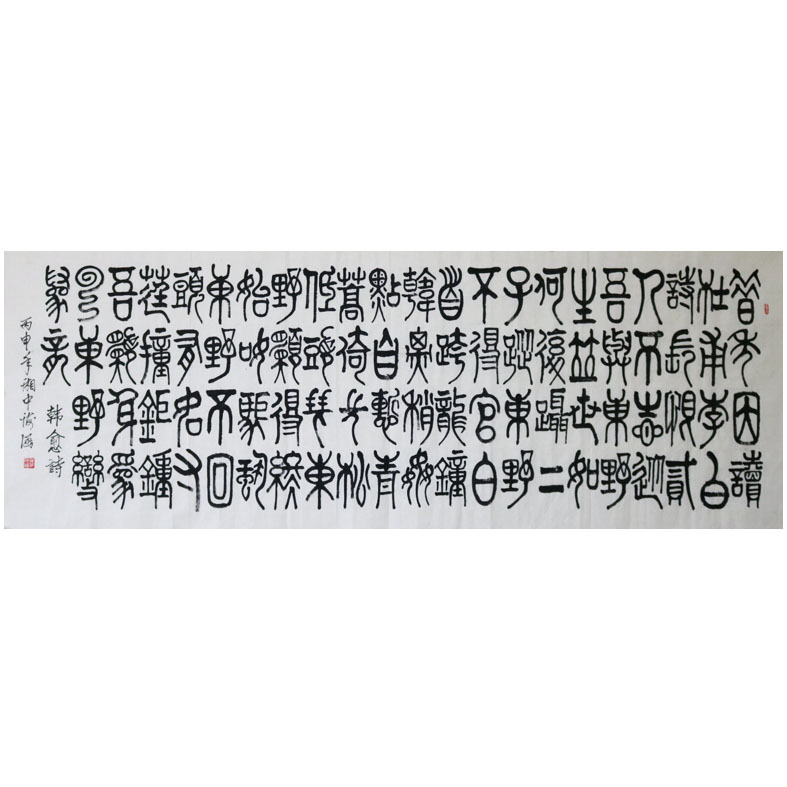 昔年因讀
杜甫李白
詩長貳
人不
吾與東野
生並世如
何復躡二
子蹤東野
不得官白
首跨龍鐘
韓子稍姦
黠自慙青
蒿倚長松
低頭拜東
野願得終
始如駏蛩
東野不回
頭有如寸
筳撞鉅鐘
吾願身爲
雲東野變
爲龍
韩愈詩
丙申年湘中